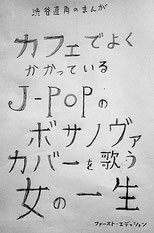 渋谷直角のまんが
カフェでよく
かかっている
J-POPの
ボサノヴァ
カバーを歌う
女の一生
ファースト・エディション